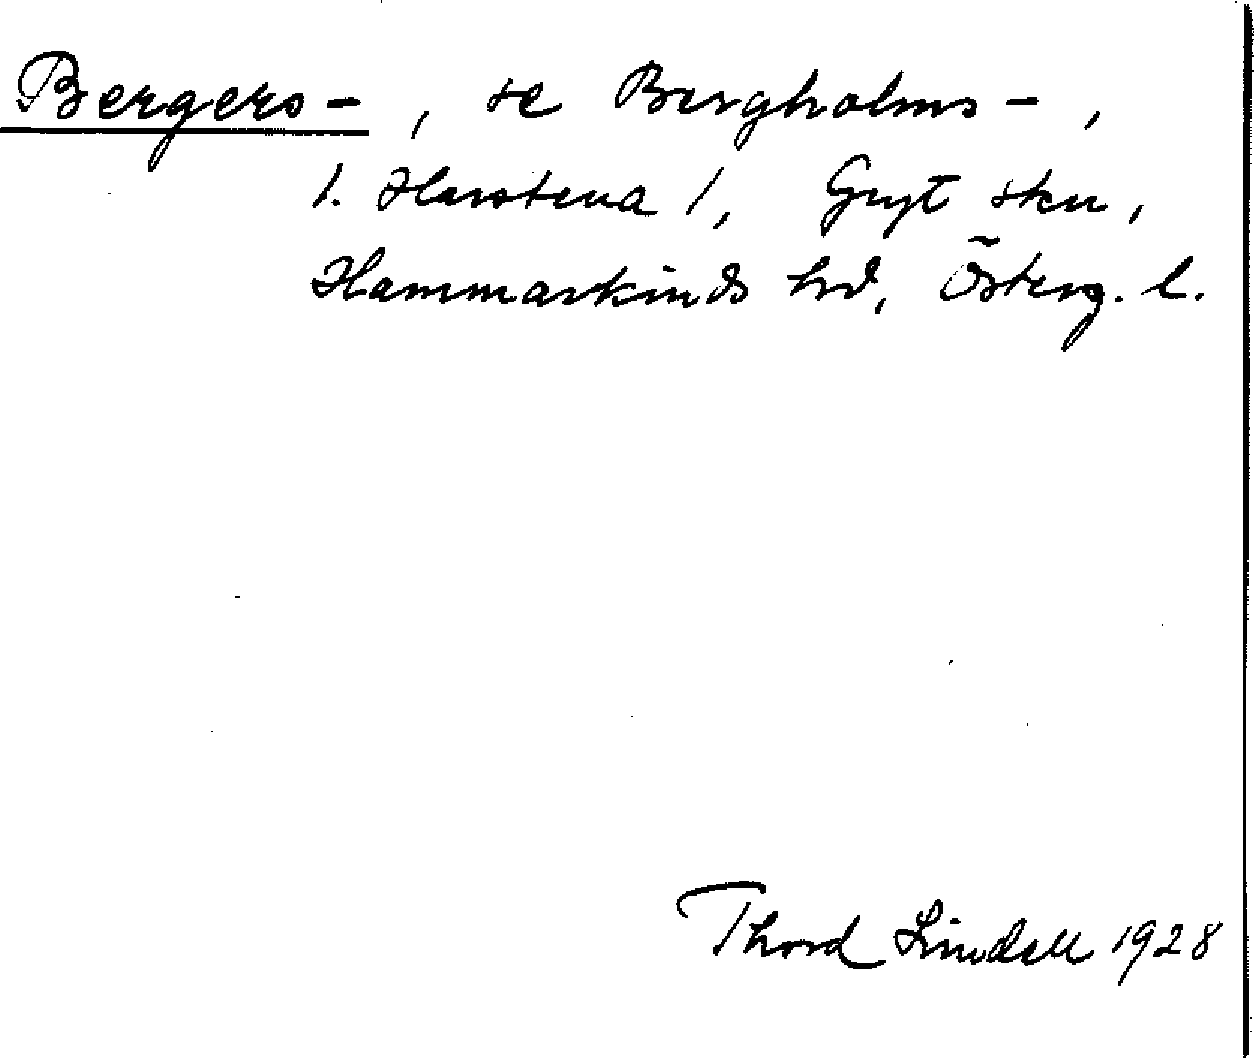 Bergers-, se Bergholms-,
1. Harstena 1, Gryt skn,
Hammarkinds hd, Österg. l.
Thord Lindell 1928